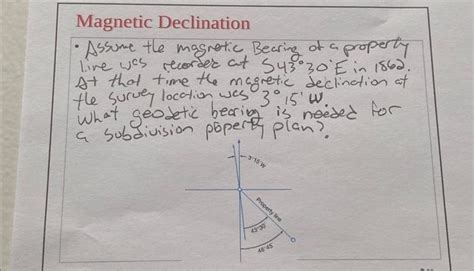 Magnetic Declination
• Assume the magnetic Bearing of a property
line was recorded at S43°30'E in 1862.
At that time the magnetic declination at
the survey location was 3°15' W.
What geodetic bearing is needed for
a subdivision poperty plan?
3·15 W
Property line
43·30
46·45